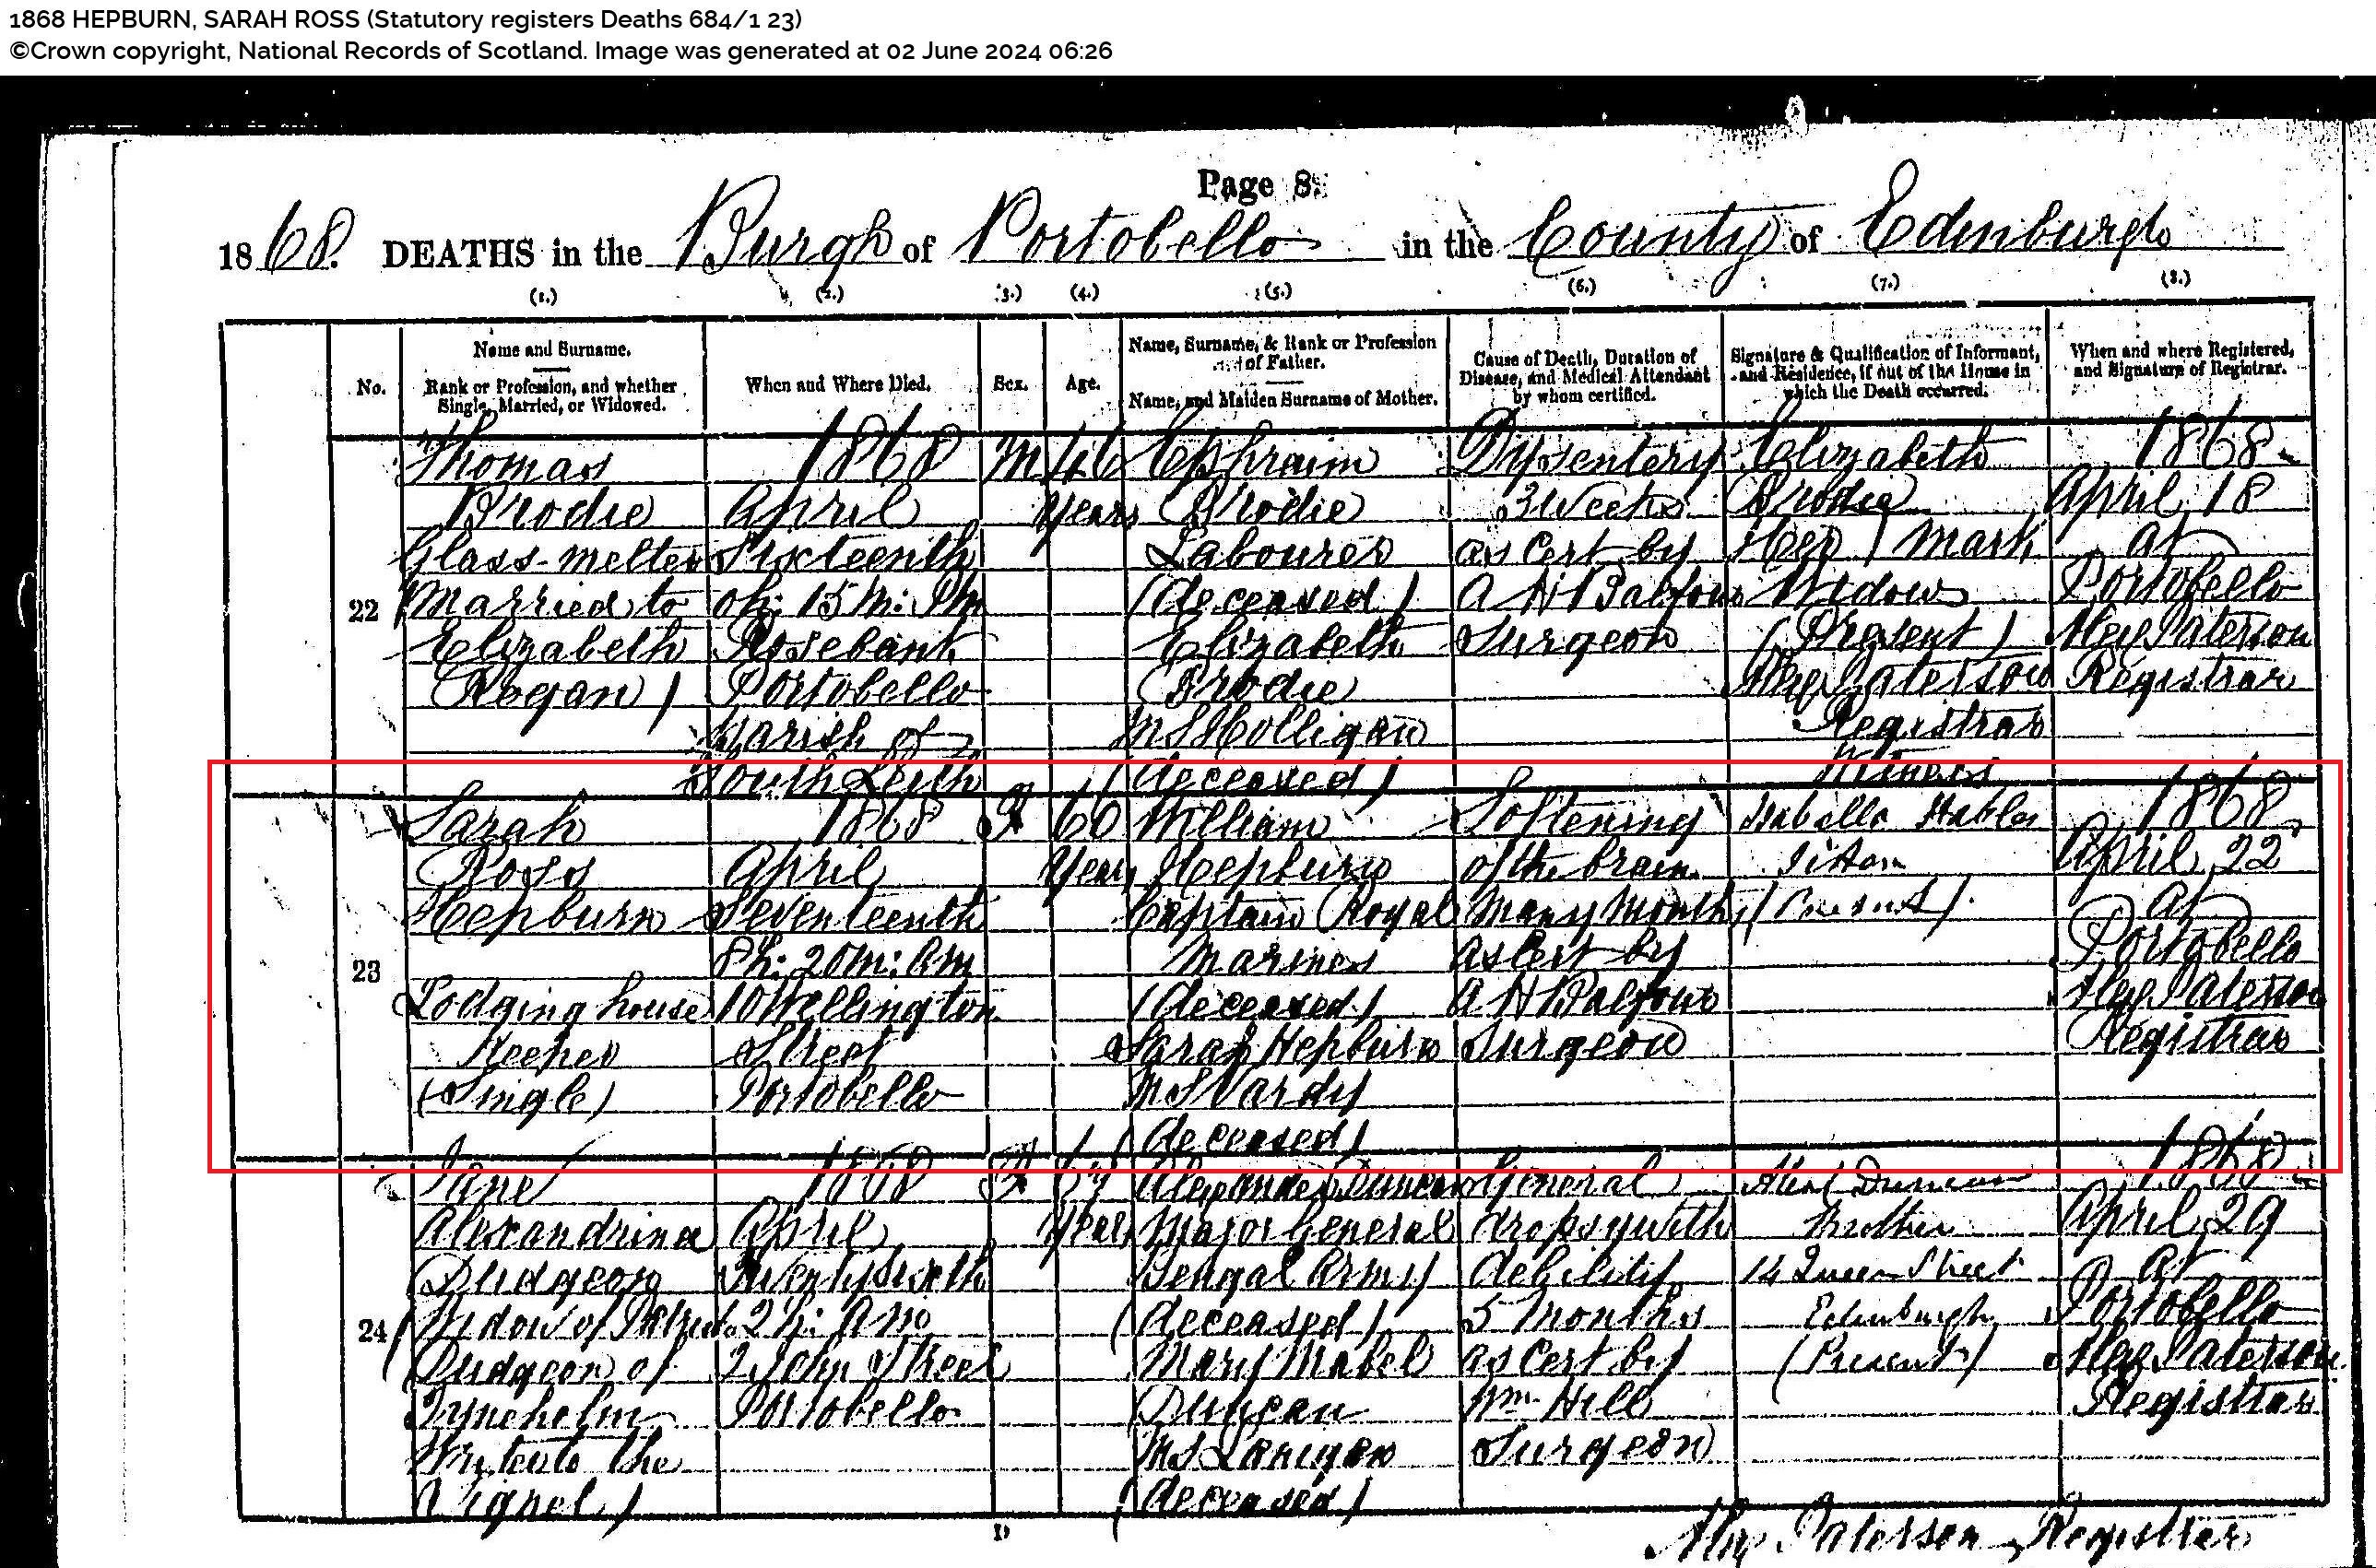 1868 HEPBURN, SARAH ROSS (Statutory registers Deaths 684/1 23)
©Crown copyright, National Records of Scotland. Image was generated at 02 June 2024 06:26
Page 8.
1868. DEATHS in the Burgh of Portobello in the County of Edinburgh
(1.) (2.) (3.) (4.) (5.) (6.) (7.) (8.)
No.
Name and Surname.
Rank or Profession, and whether
Single, Married, or Widowed.
When and Where Died.
Sex.
Age.
Name, Surname, & Rank or Profession
of Father.
Name, and Maiden Surname of Mother.
Cause of Death, Duration of
Disease, and Medical Attendant
by whom certified.
Signature & Qualification of Informant,
and Residence, if out of the House in
which the Death occurred.
When and where Registered,
and Signature of Registrar.
22
Thomas
Brodie
Glass-melter
(Married to
Elizabeth
Rogan)
1868
April
Sixteenth
0h: 15m: PM
Rosebank
Portobello
Parish of
South Leith
M
46
Years
Ephraim
Brodie
Labourer
(deceased)
Elizabeth
Brodie
MS Holligan
(deceased)
Dysentery
3 Weeks
as Cert by
A H Balfour
Surgeon
Elizabeth
Brodie
Her mark
Widow
(Present)
Alex Paterson
Registrar
Witness
1868
April 18
at
Portobello
Alex Paterson
Registrar
23
Sarah
Ross
Hepburn
Lodging house
Keeper
(Single)
1868
April
Seventeenth
8h: 20m: AM
10 Wellington
Street
Portobello
F
60
Years
William
Hepburn
Captain Royal
Marines
(deceased)
Sarah Hepburn
MS Vardy
(deceased)
Softening
of the brain
Many Months
as Cert by
A H Balfour
Surgeon
Isabella Stables
Sister
(Present)
1868
April 22
at
Portobello
Alex Paterson
Registrar
24
Jane
Alexandrina
Dudgeon
(Widow of Patrick
Dudgeon of
Tyneholm
Writer to the
Signet)
1868
April
Twenty Sixth
2h: AM
2 John Street
Portobello
F
Years
Alexander Duncan
Major General
Bengal Army
(deceased)
Mary Mabel
Duncan
MS Lanigan
(deceased)
General
dropsy with
debility
5 Months
as Cert by
Wm Hill
Surgeon
Alexr Duncan
Brother
14 Queen Street
Edinburgh
(Present)
1868
April 29
at
Portobello
Alex Paterson
Registrar
D
Alex Paterson, Registrar